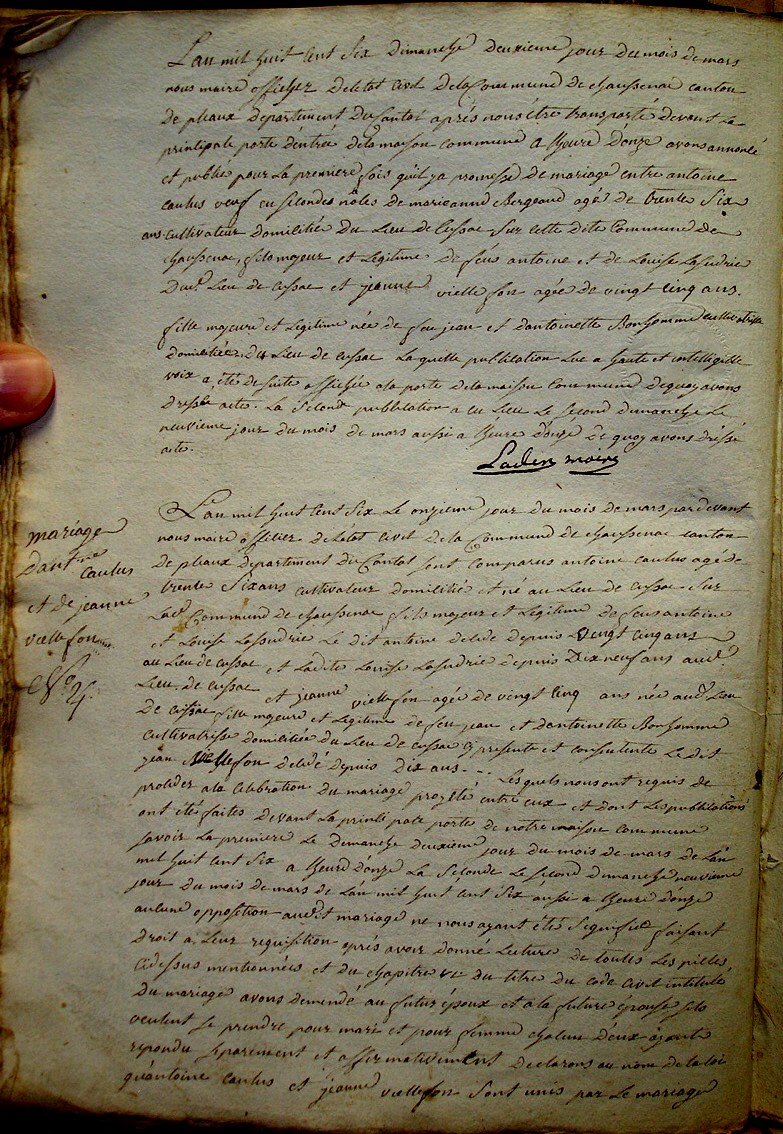 L'an mil huit cent six dimanche deuxieme jour du mois de mars
nous maire officier deletat civil dela Commune de chaussenac canton
de pleaux departement du Cantal aprés nous être transporté devant la
principale porte d'entrée dela maison commune a lheure d'onze avons annoncé
et publié pour la premiere fois qu'il ya promesse de mariage entre antoine
caulus veuf en secondes nôces de marieanne Bergeaud agé de trente Six
ans cultivateur domicilié du Lieu de cessac sur cette dite Commune de
chaussenac, fils majeur et Legitime de feus antoine et de Louise Lasudrie
Dud. Lieu de cessac et jeanne viellefon agée de vingt Cinq ans.
fille majeure et Legitime née de feu jean et dantoinette Bonhomme cultivatrisse
domiciliée du Lieu de cessac La quelle publication lue a haute et intelligible
voix a été de suite affichée a la porte dela maison commune de quoy avons
Dressé acte. La seconde publication a eu Lieu Le second dimanche Le
neuvieme jour du mois de mars aussi a lheure d'onze de quoy avons dréssé
acte.
Laden maire
mariage
d'antne caulus
et de jeanne
viellefon
No 4.
L'an mil huit cent six Le onzieme jour du mois de mars par devant
nous maire officier deletat civil dela Commune de chaussenac canton
de pleaux departement du Cantal sont comparus antoine caulus agé de
trente six ans cultivateur domicilié et né au Lieu de cessac sur
Lad. Commune de chaussenac fils majeur et Legitime de feus antoine
et Louise Lassudrie Le dit antoine decedé depuis vingt cinq ans
au Lieu de cessac et Ladite Louise Lasudrie depuis Dix neuf ans aud.
Lieu de cessac et jeanne viellefon agée de vingt Cinq ans née aud. Lieu
De cessac fille majeure et Legitime de feu jean et dantoinette Bonhomme
cultivatrisse domiciliée du Lieu de cessac cy presente et consentente Le dit
jean viellefon decedé depuis dix ans -- Lesquels nous ont requis de
proceder a la Celebration du mariage projeté entre eux et dont Les publications
ont été faites devant La principale porte de notre maison commune
savoir La premiere Le dimanche deuxieme jour du mois de mars de Lan
mil huit cent six a lheure d'onze La seconde Le second dimanche neuvieme
jour du mois de mars de L'an mil huit cent six aussi a lheure d'onze
aucune opposition aud. mariage ne nous ayant été signifiée faisant
Droit a Leur requisition aprés avoir donné Lecture de toutes Les pieces
cidessus mentionnées et du chapitre VI du titre du code civil intitulé
Du mariage avons demendé au futur époux et a la future épouse sils
veulent se prendre pour mari et pour femme chacun d'eux ayant
repondu separement et affirmativement Declarons au nom de la loi
qu'antoine caulus et jeanne viellefon sont unis par Le mariage